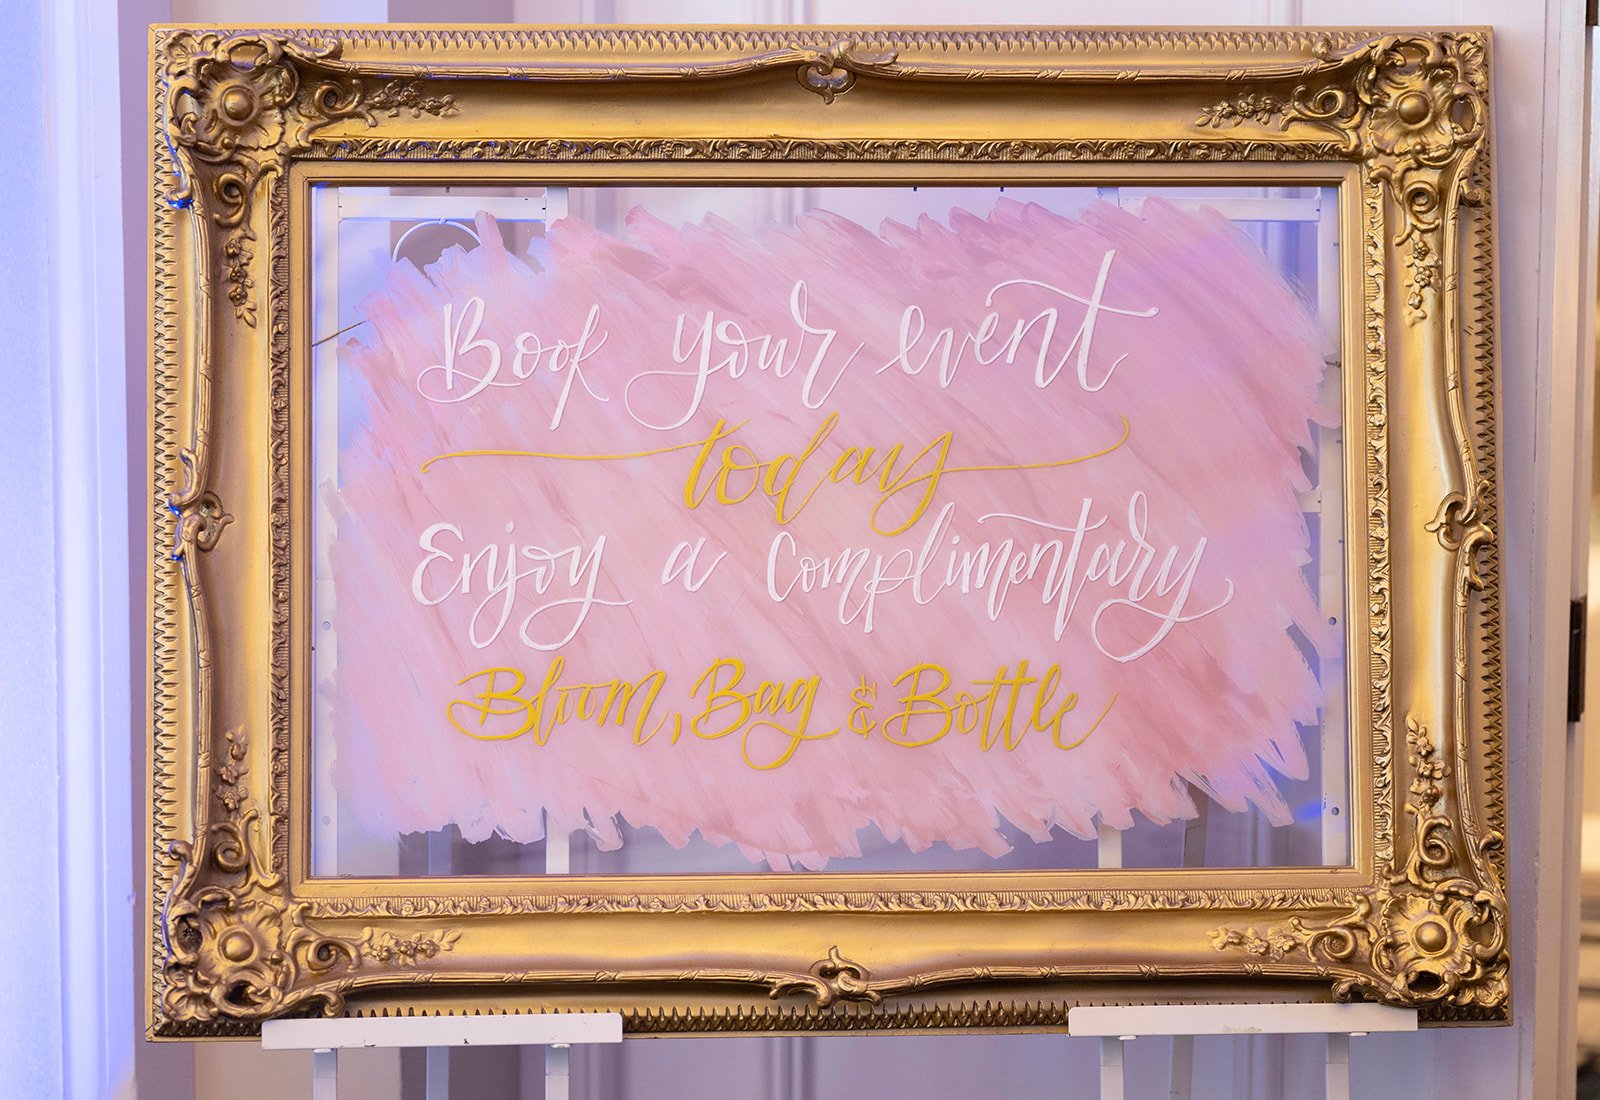 Book your event
today
Enjoy a Complimentary
Bloom, Bag & Bottle